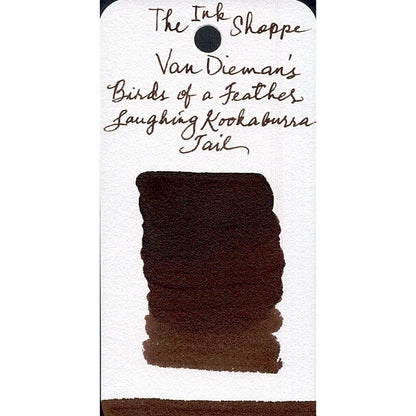 The Ink Shoppe
Van Dieman's
Birds of a Feather
Laughing Kookaburra
Tail